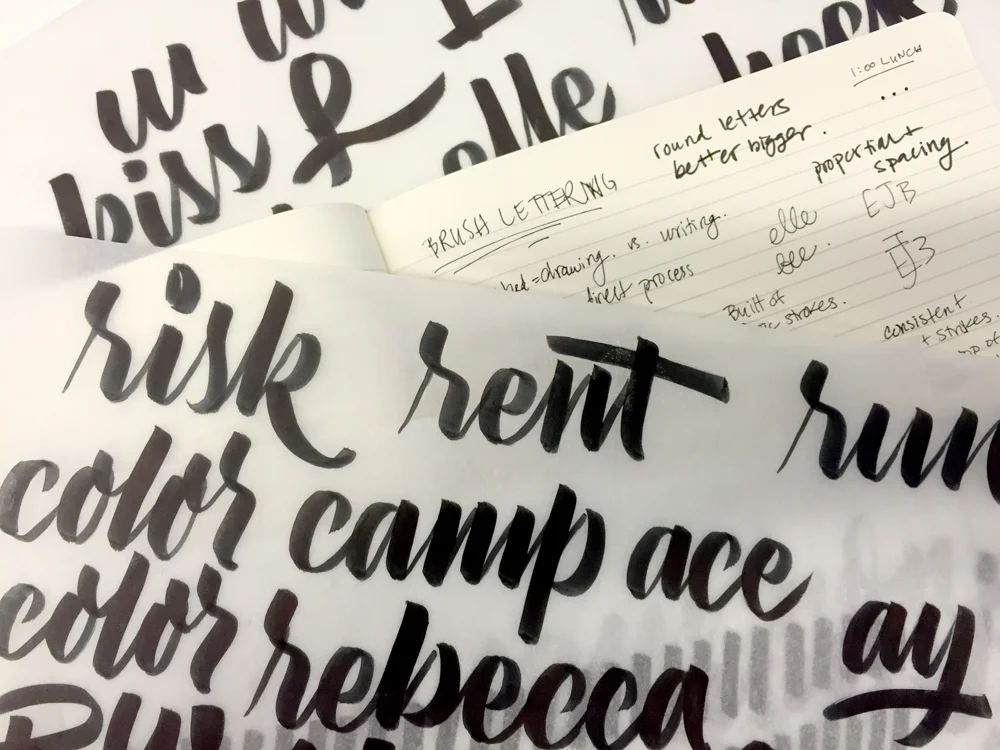 kiss & elle
1:00 LUNCH
...
round letters
better bigger.
proportion +
spacing.
BRUSH LETTERING
vs. writing.
direct process
elle
EJB
Built of
strokes.
EJB
consistent
+ strokes.
risk rent run
color camp ace
color rebecca ay